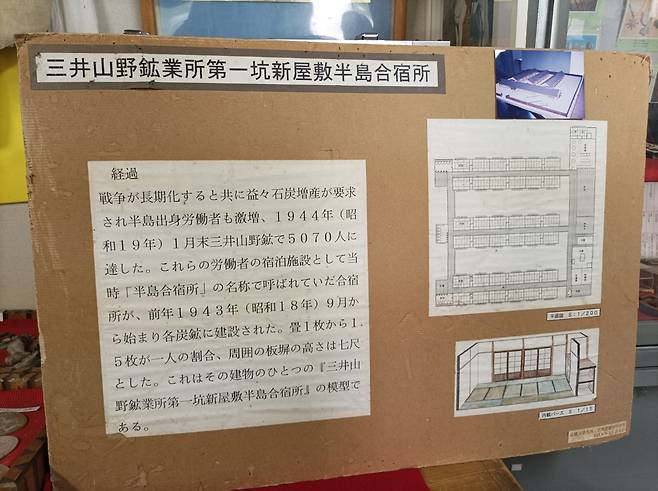 三井山野鉱業所第一坑新屋敷半島合宿所
経過
戦争が長期化すると共に益々石炭増産が要求
され半島出身労働者も激増、１９４４年（昭
和１９年）１月末三井山野鉱で５０７０人に
達した。これらの労働者の宿泊施設として当
時「半島合宿所」の名称で呼ばれていた合宿
所が、前年１９４３年（昭和１８年）９月か
ら始まり各炭鉱に建設された。畳１枚から１．
５枚が一人の割合、周囲の板塀の高さは七尺
とした。これはその建物のひとつの『三井山
野鉱業所第一坑新屋敷半島合宿所』の模型で
ある。
平面図 S：１/２００
内観パース S：１/１５